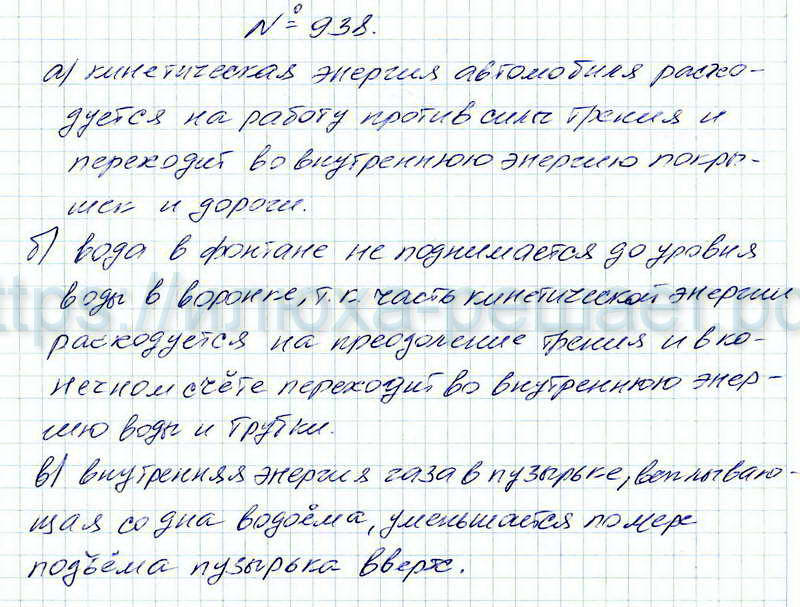 № 938.
а) кинетическая энергия автомобиля расхо-
дуется на работу против силы трения и
переходит во внутреннюю энергию покры-
шек и дороги.
б) вода в фонтане не поднимается до уровня
воды в воронке, т.к. часть кинетической энергии
расходуется на преодоление трения и в ко-
нечном счёте переходит во внутреннюю энер-
гию воды и трубки.
в) внутренняя энергия газа в пузырьке, всплываю-
щая со дна водоёма, уменьшается по мере
подъёма пузырька вверх.